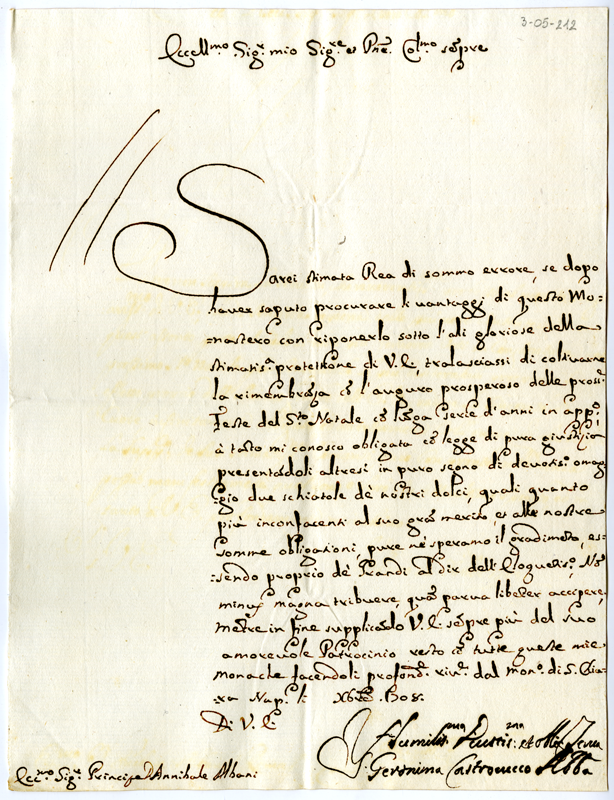 3-05-212
Eccell.mo Sig.r mio Sig.re et Pñe Col.mo sẽpre
Sarei stimata Rea di sommo errore, se dopo
haver saputo procurare li vantaggi di questo Mo=
nastero con riponerlo sotto l'ali gloriose della
stimatis.a protettione di V. E., tralasciassi di coltivarne
la rimembrãza cõ l'auguro prosperoso delle pross.e
Feste del S.to Natale cõ lũga serie d'anni in app.o
à tãto mi conosco obligata cõ legge di pura giustitia
presentãdoli altresi in puro segno di devotis.o omag
=gio due schiatole dè nostri dolci, quali quanto
più inconfacenti al suo grã merito, et alle nostre
somme obligationi, pure ne speramo il gradimẽto, es=
=sendo proprio dè Grandi al dir dell'Eloquẽtis.o, Nõ
minus magna tribuere, quã parva libẽter accipere,
mẽtre in fine supplicãdo V. E. sẽpre più del suo
amorevole Patrocinio resto cõ tutte queste mie
monache facendoli profond.a riv.a dal mon.o di S. Chia=
=ra Nap. li Xbre
Di V. E.
Humilis.ma Devotis.ma et Serva
Geronima Castrocucco Abba
Ecc.mo Sig.r Principe D Annibale Albani